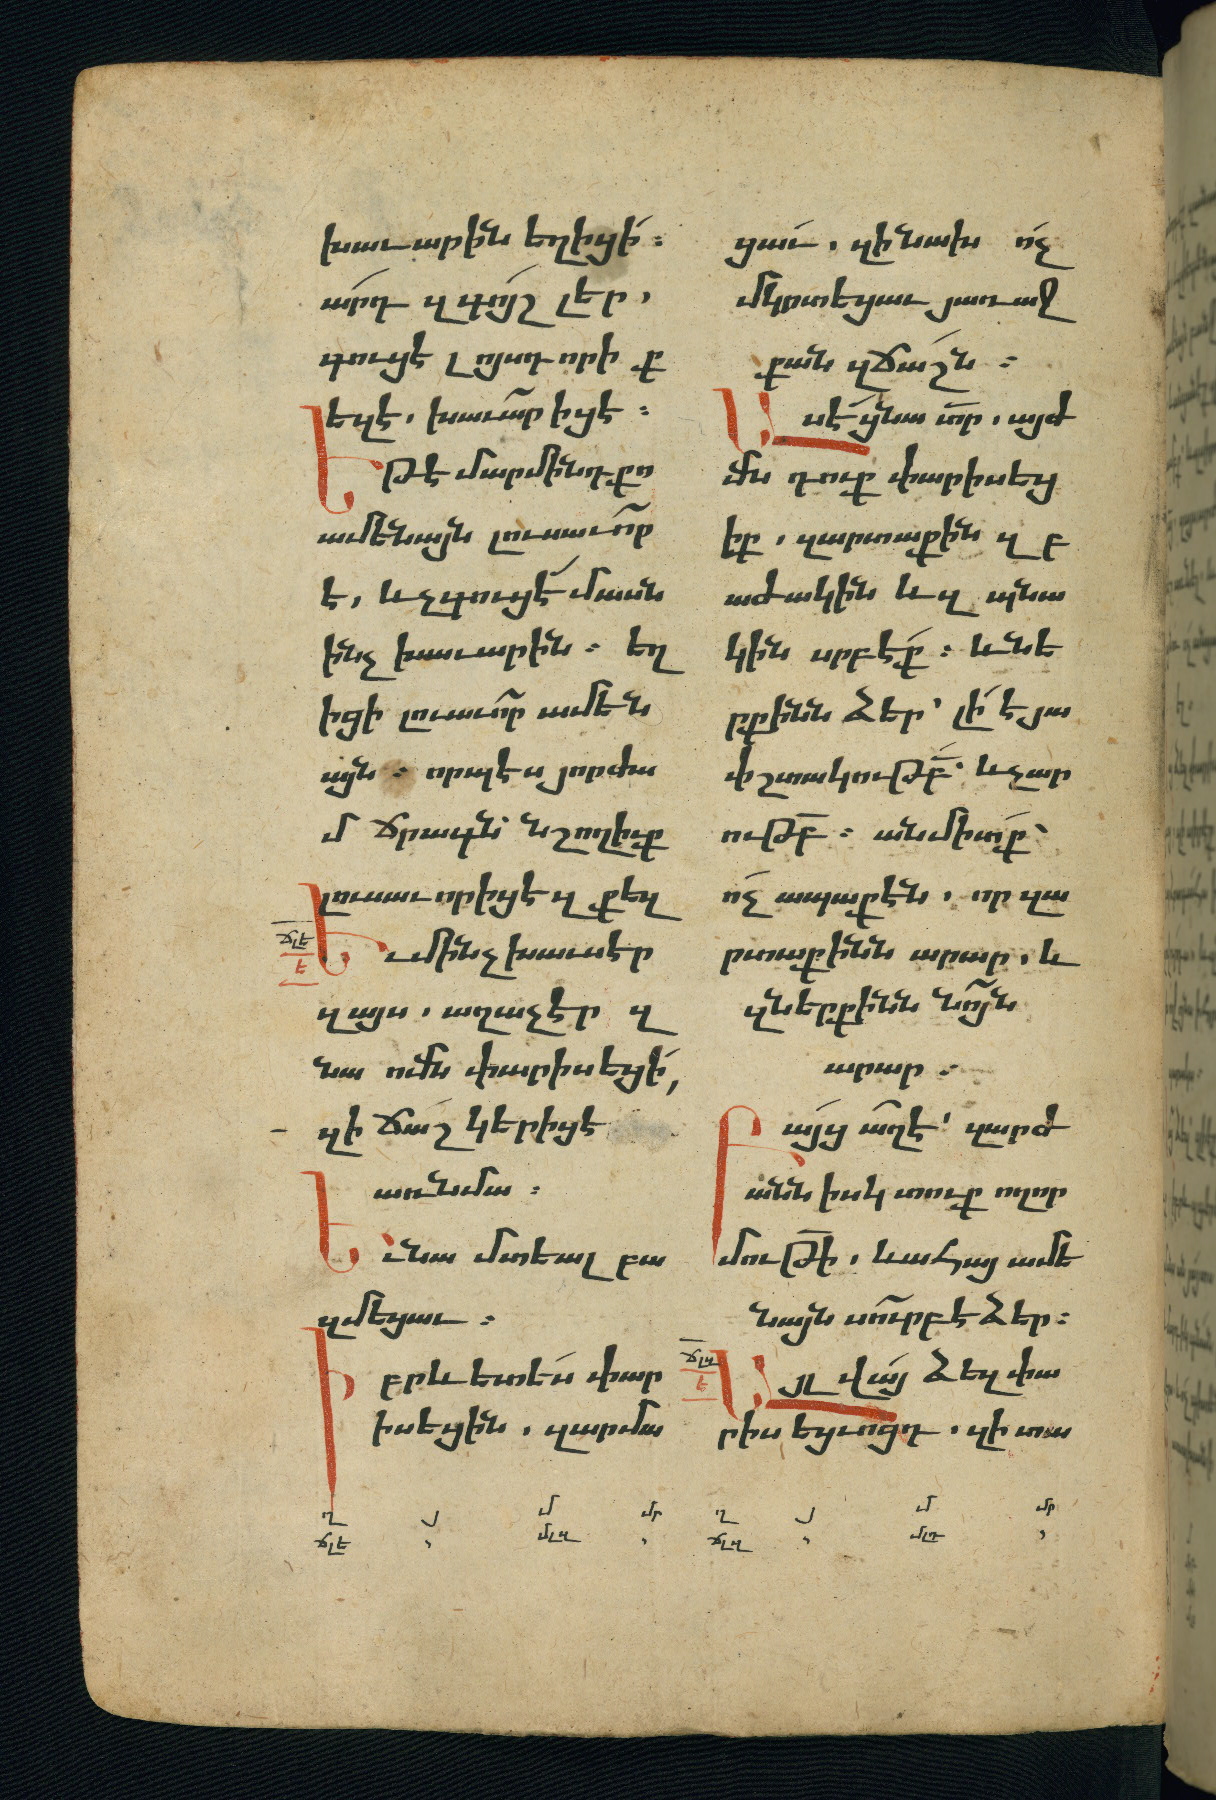 խաւարին եղիցի՛։
ա՛րդ զգո՛յշ լեր,
գուցէ լոյսդ որ ի ք
եզէ, խաւա՟ր իցէ։
Եթէ մարմինդ քո
ամենայն լուսաւո՟ր
է, և չգուցէ՛ մասն
ինչ խաւարին. եղ
իցի լուսաւո՟ր ամեն
այն. որպէս յորժա
մ ճրագն՝ նշողիւք
լուսաւորիցէ զքեզ
ճլէ
է
Եւ մինչ խաւսէր
զայս, աղաչէր զ
նա ոմն փարիսեցի՛,
զի ճա՛շ կերիցէ
առ նմա։
Եւ նա մտեալ բա
զմեցաւ։
Իբրև ետես փար
իսեցին, զարմա
ցաւ, զի նախ ո՛չ
մկրտեցաւ յառաջ
քան զճաշն։
Ասէ ցնա տ՟ր, այժ
մ՟ս դուք փարիսեց
իք, զարտաքին զբ
աժակին և զպնա
կին սրբէք։ և նե
րքինն ձեր՝ լի՛ է յա
փշտակութբ՟՝ և չար
ութբ՟։ անմիտք՝
ո՛չ ապաքէն, որ զա
րտաքինն արար, և
զներքինն նո՟յն
արար։
Բայց աղէ՝ զարժ
անն իսկ տուք ողոր
մութի՟, և ահայ ամե
նայն սո՟ւրբ է ձեր։
ճլզ
է
Այլ վա՛յ ձեզ փա
րիսեցւոցդ, զի տա
ղ յ մ մր ղ յ մ մր
ճլէ , մլզ , ճլզ , մլե ,